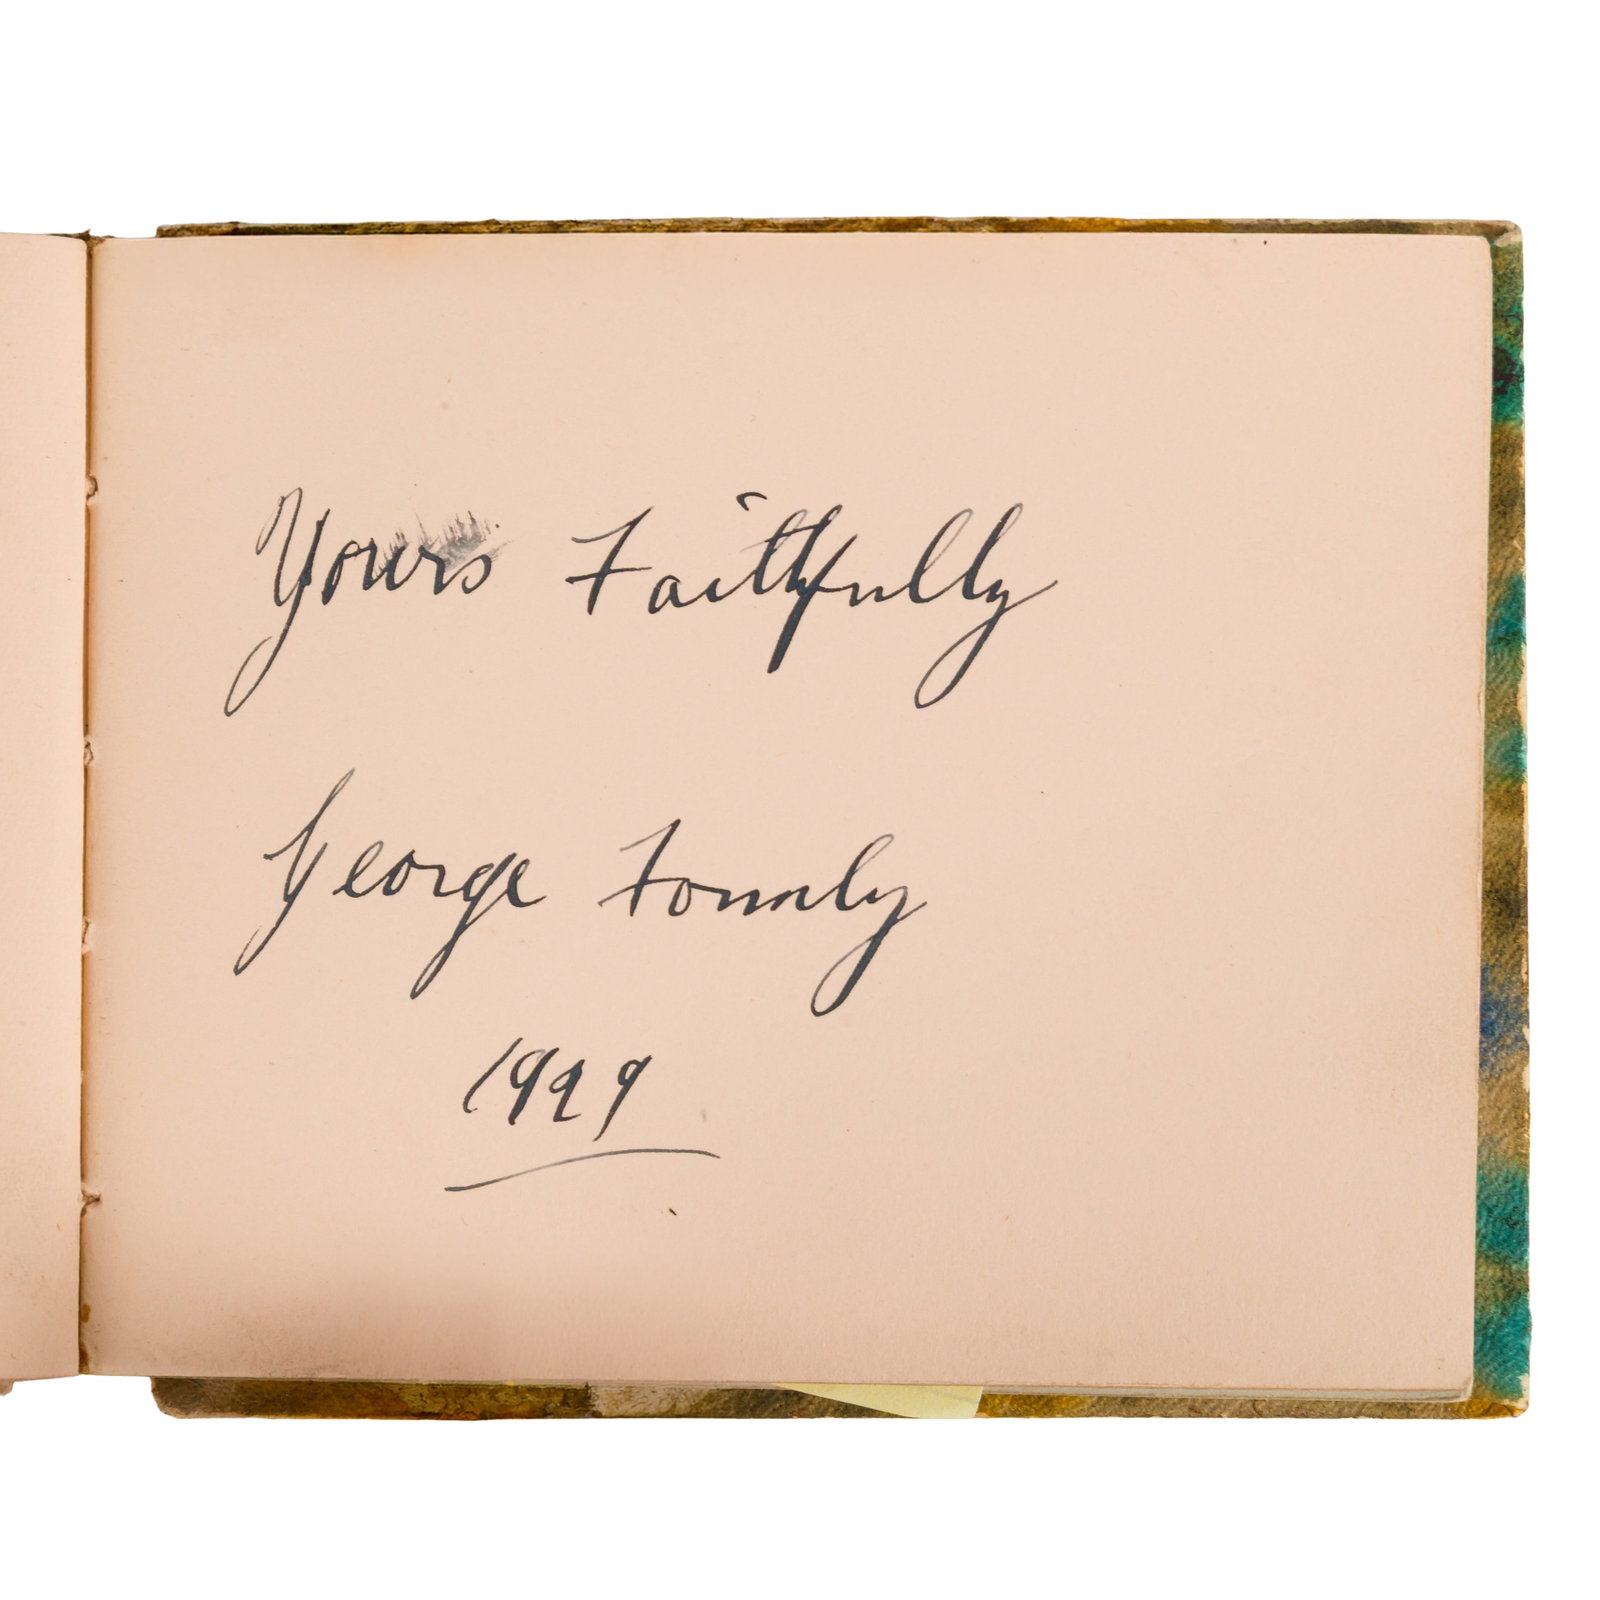 Yours Faithfully
George Formby
1929